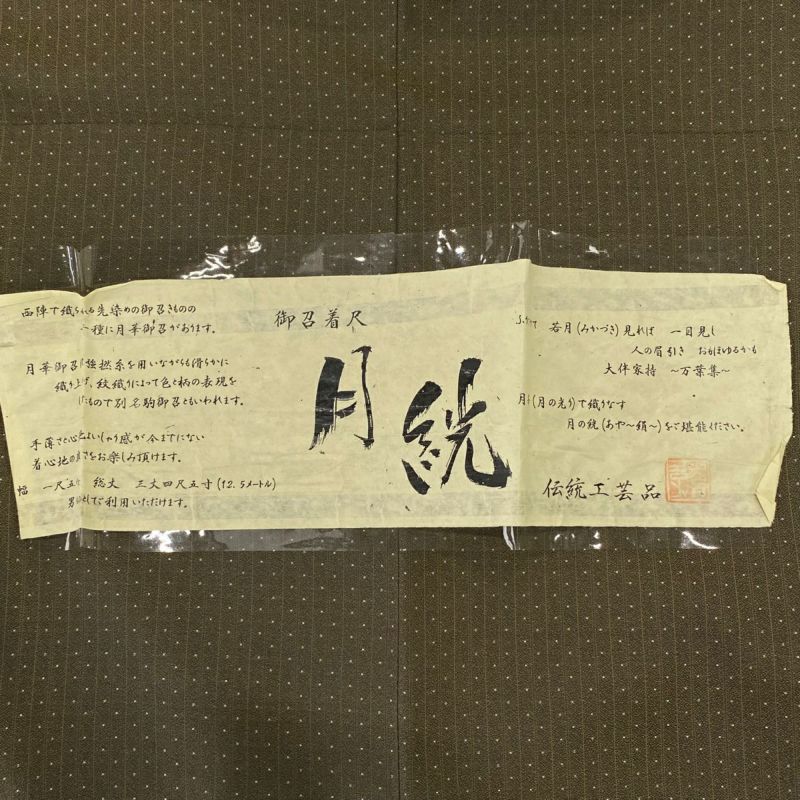 御召着尺
月統
西陣で織られる先染めの御召きものの
一種に月華御召があります。
月華御召 強撚糸を用いながらも滑らかに
織り上げ、紋織りによって色と柄の表現を
したもので別名駒御召ともいわれます。
手薄さと心地よいしゃり感が今までにない
着心地の良さをお楽しみ頂けます。
幅 一尺五分 総丈 三丈四尺五寸(12.5メートル)
男 としてご利用いただけます。
若月(みかづき)見れば 一目見し
人の眉引き おもほゆるかも
大伴家持 ~万葉集~
月 (月の光り)で織りなす
月の統(あや~絹~)をご堪能ください。
伝統工芸品